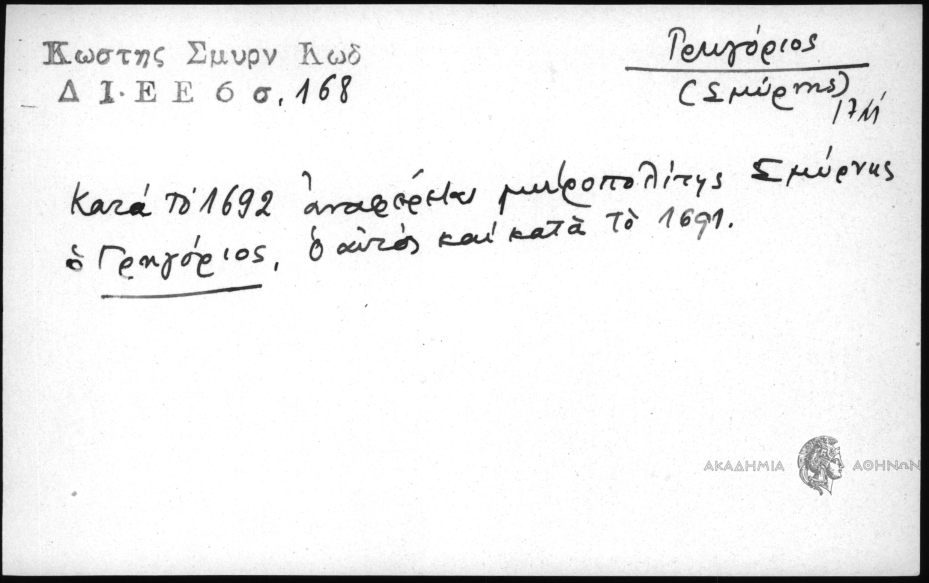 Κωστης Σμυρν Κωδ
Δ Ι. Ε Ε 6 σ. 168
Γρηγόριος
(Σμύρνης)
Κατά τό 1692 ἀναφέρεται μητροπολίτης Σμύρνης
ὁ Γρηγόριος, ὁ αὐτός καί κατὰ τὸ 1691.
ΑΚΑΔΗΜΙΑ ΑΘΗΝΩΝ